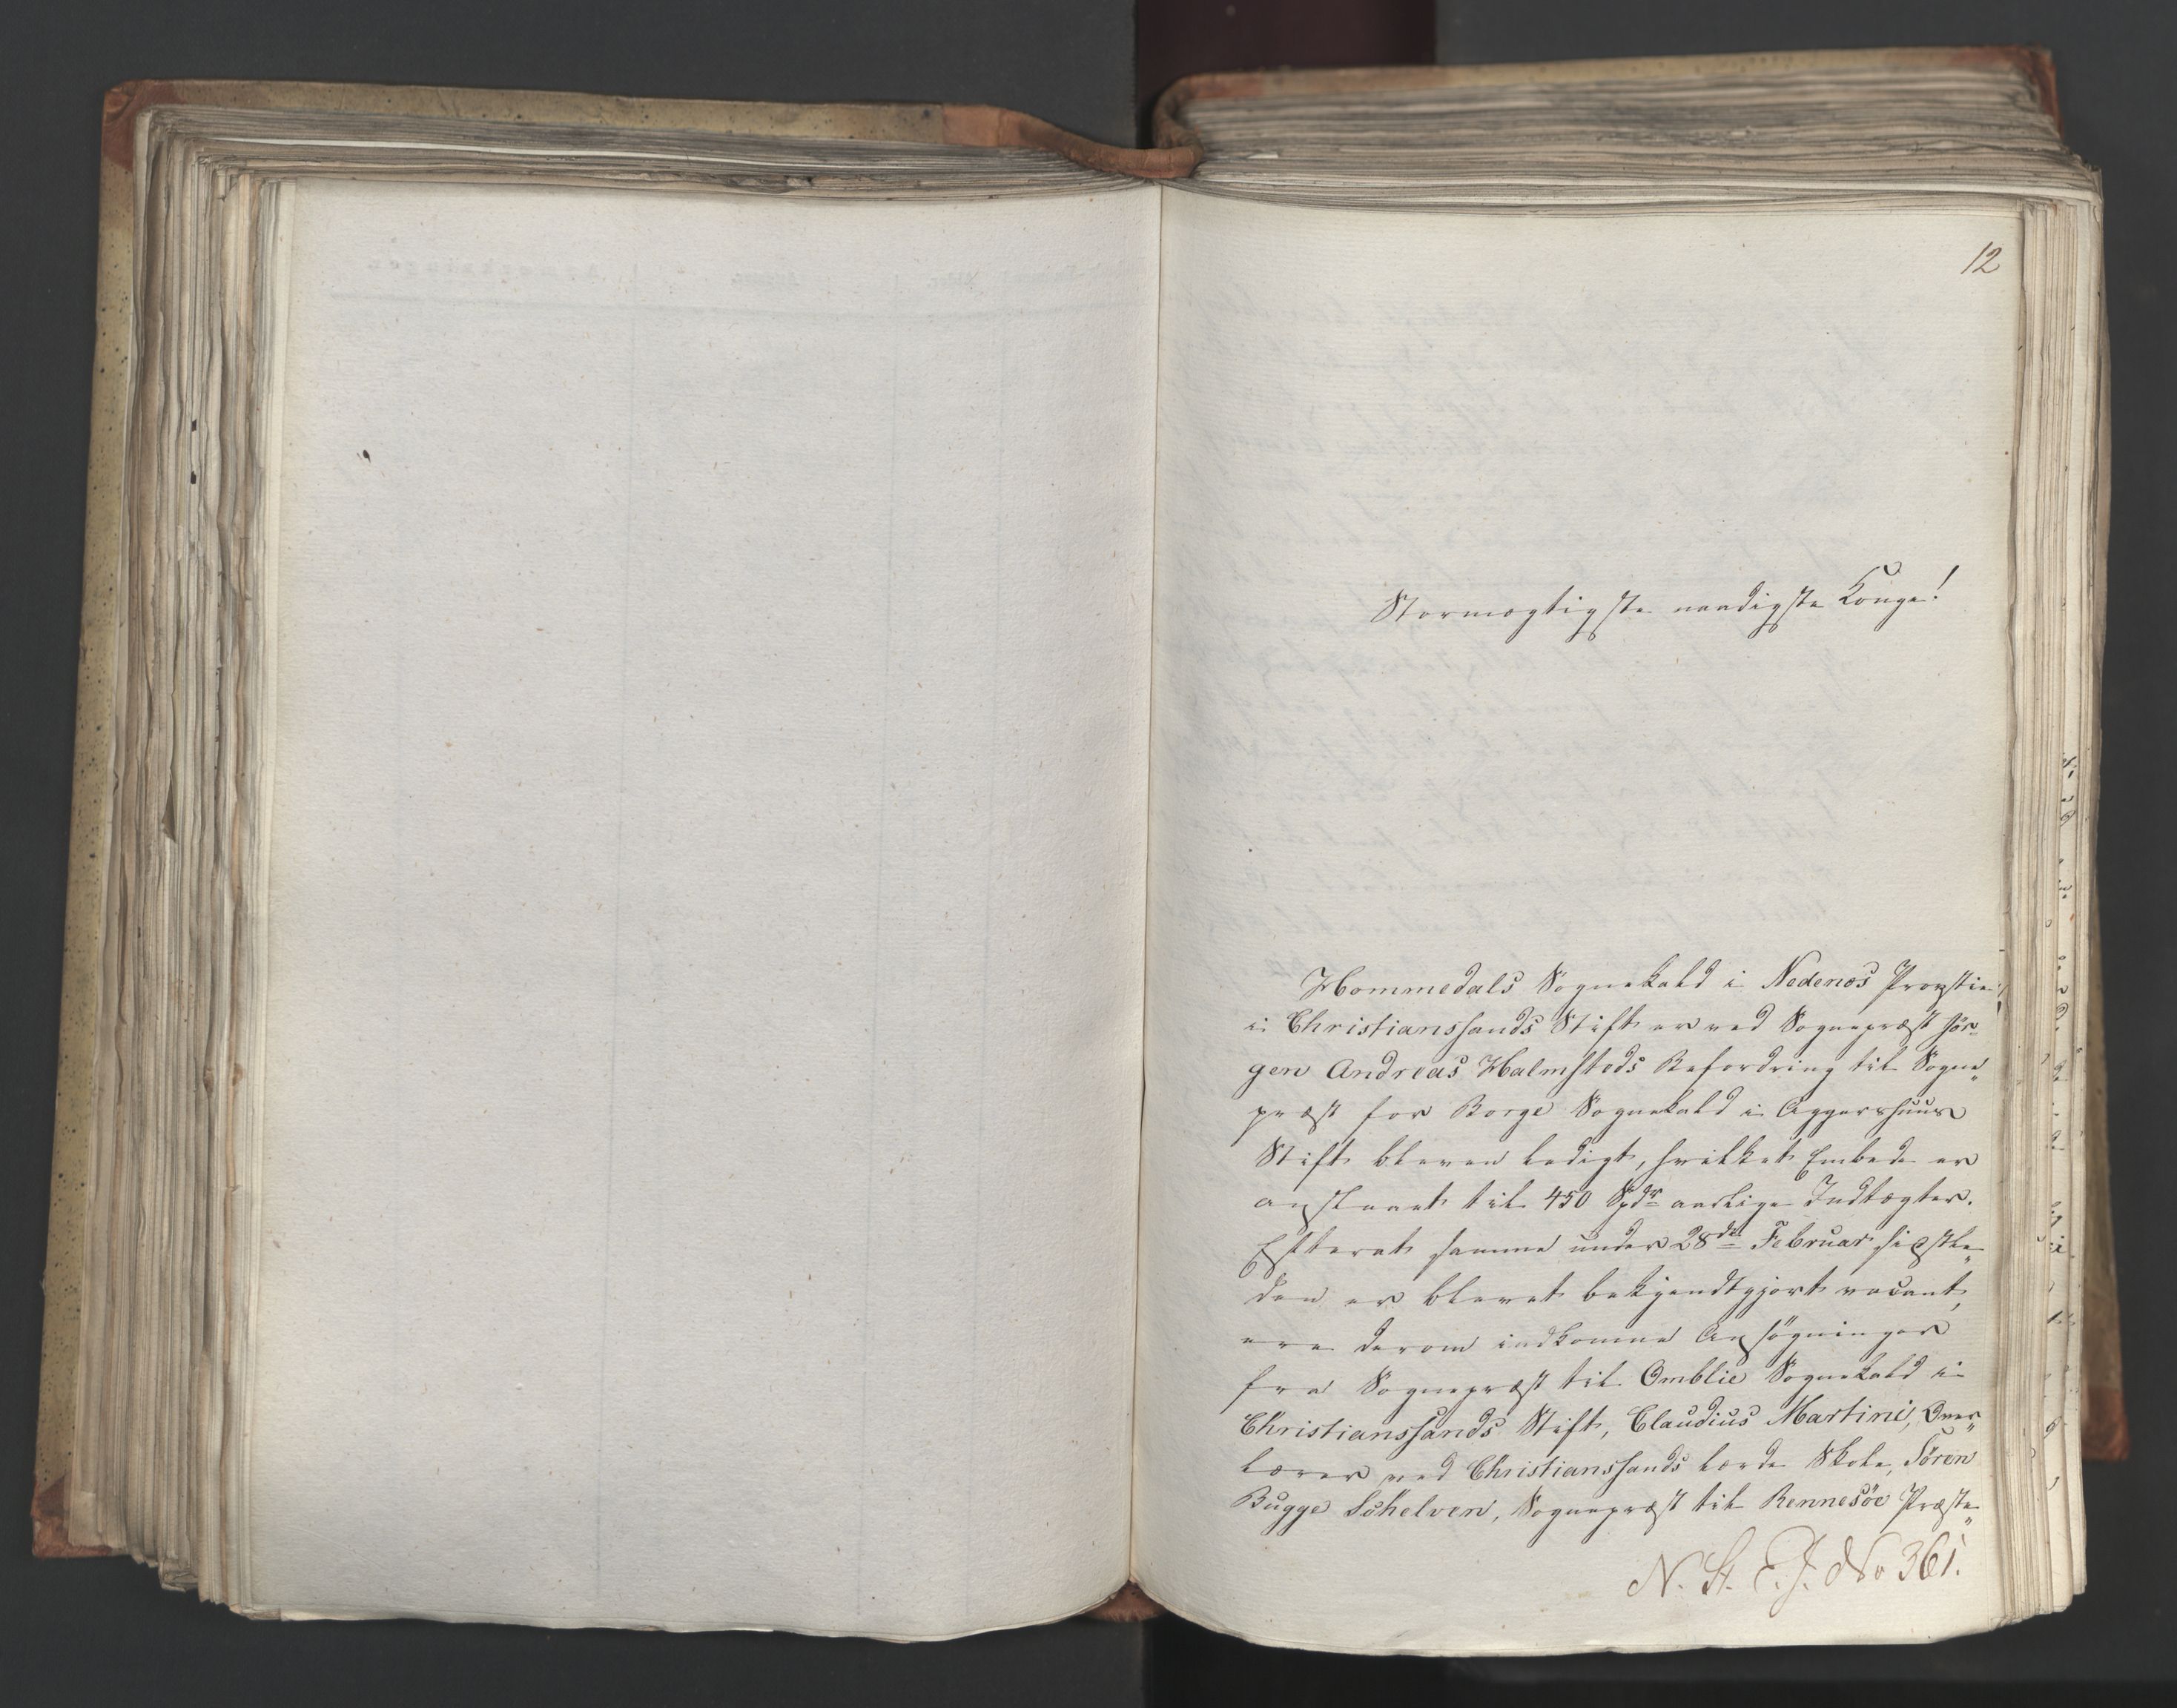 12
Stormægtigste naadigste Konge!
Hommedals Sognekald i Nedenæs Provstie
i Christianssands Stift er ved Sognepræst Jör-
gen Andreas Halmstods Befordring til Sogne
præst for Borge Sognekald i Aggershuus
Stift bleven ledigt, hvilket Embede er
anslaaet til 450 Spdr aarlige Indtægter.
Efterat samme under 28de Februar sidstle
den er blevet bekjendtgjort vacant,
ere derom indkomne Ansögninger
fra Sognepræst til Omblie Sognekald i
Christianssands Stift, Claudius Martini, Over
lærer ved Christianssands lærde Skole, Sören
Bugge Schelven, Sognepræst til Rennesöe Præste
N. St. E. J. No 361.